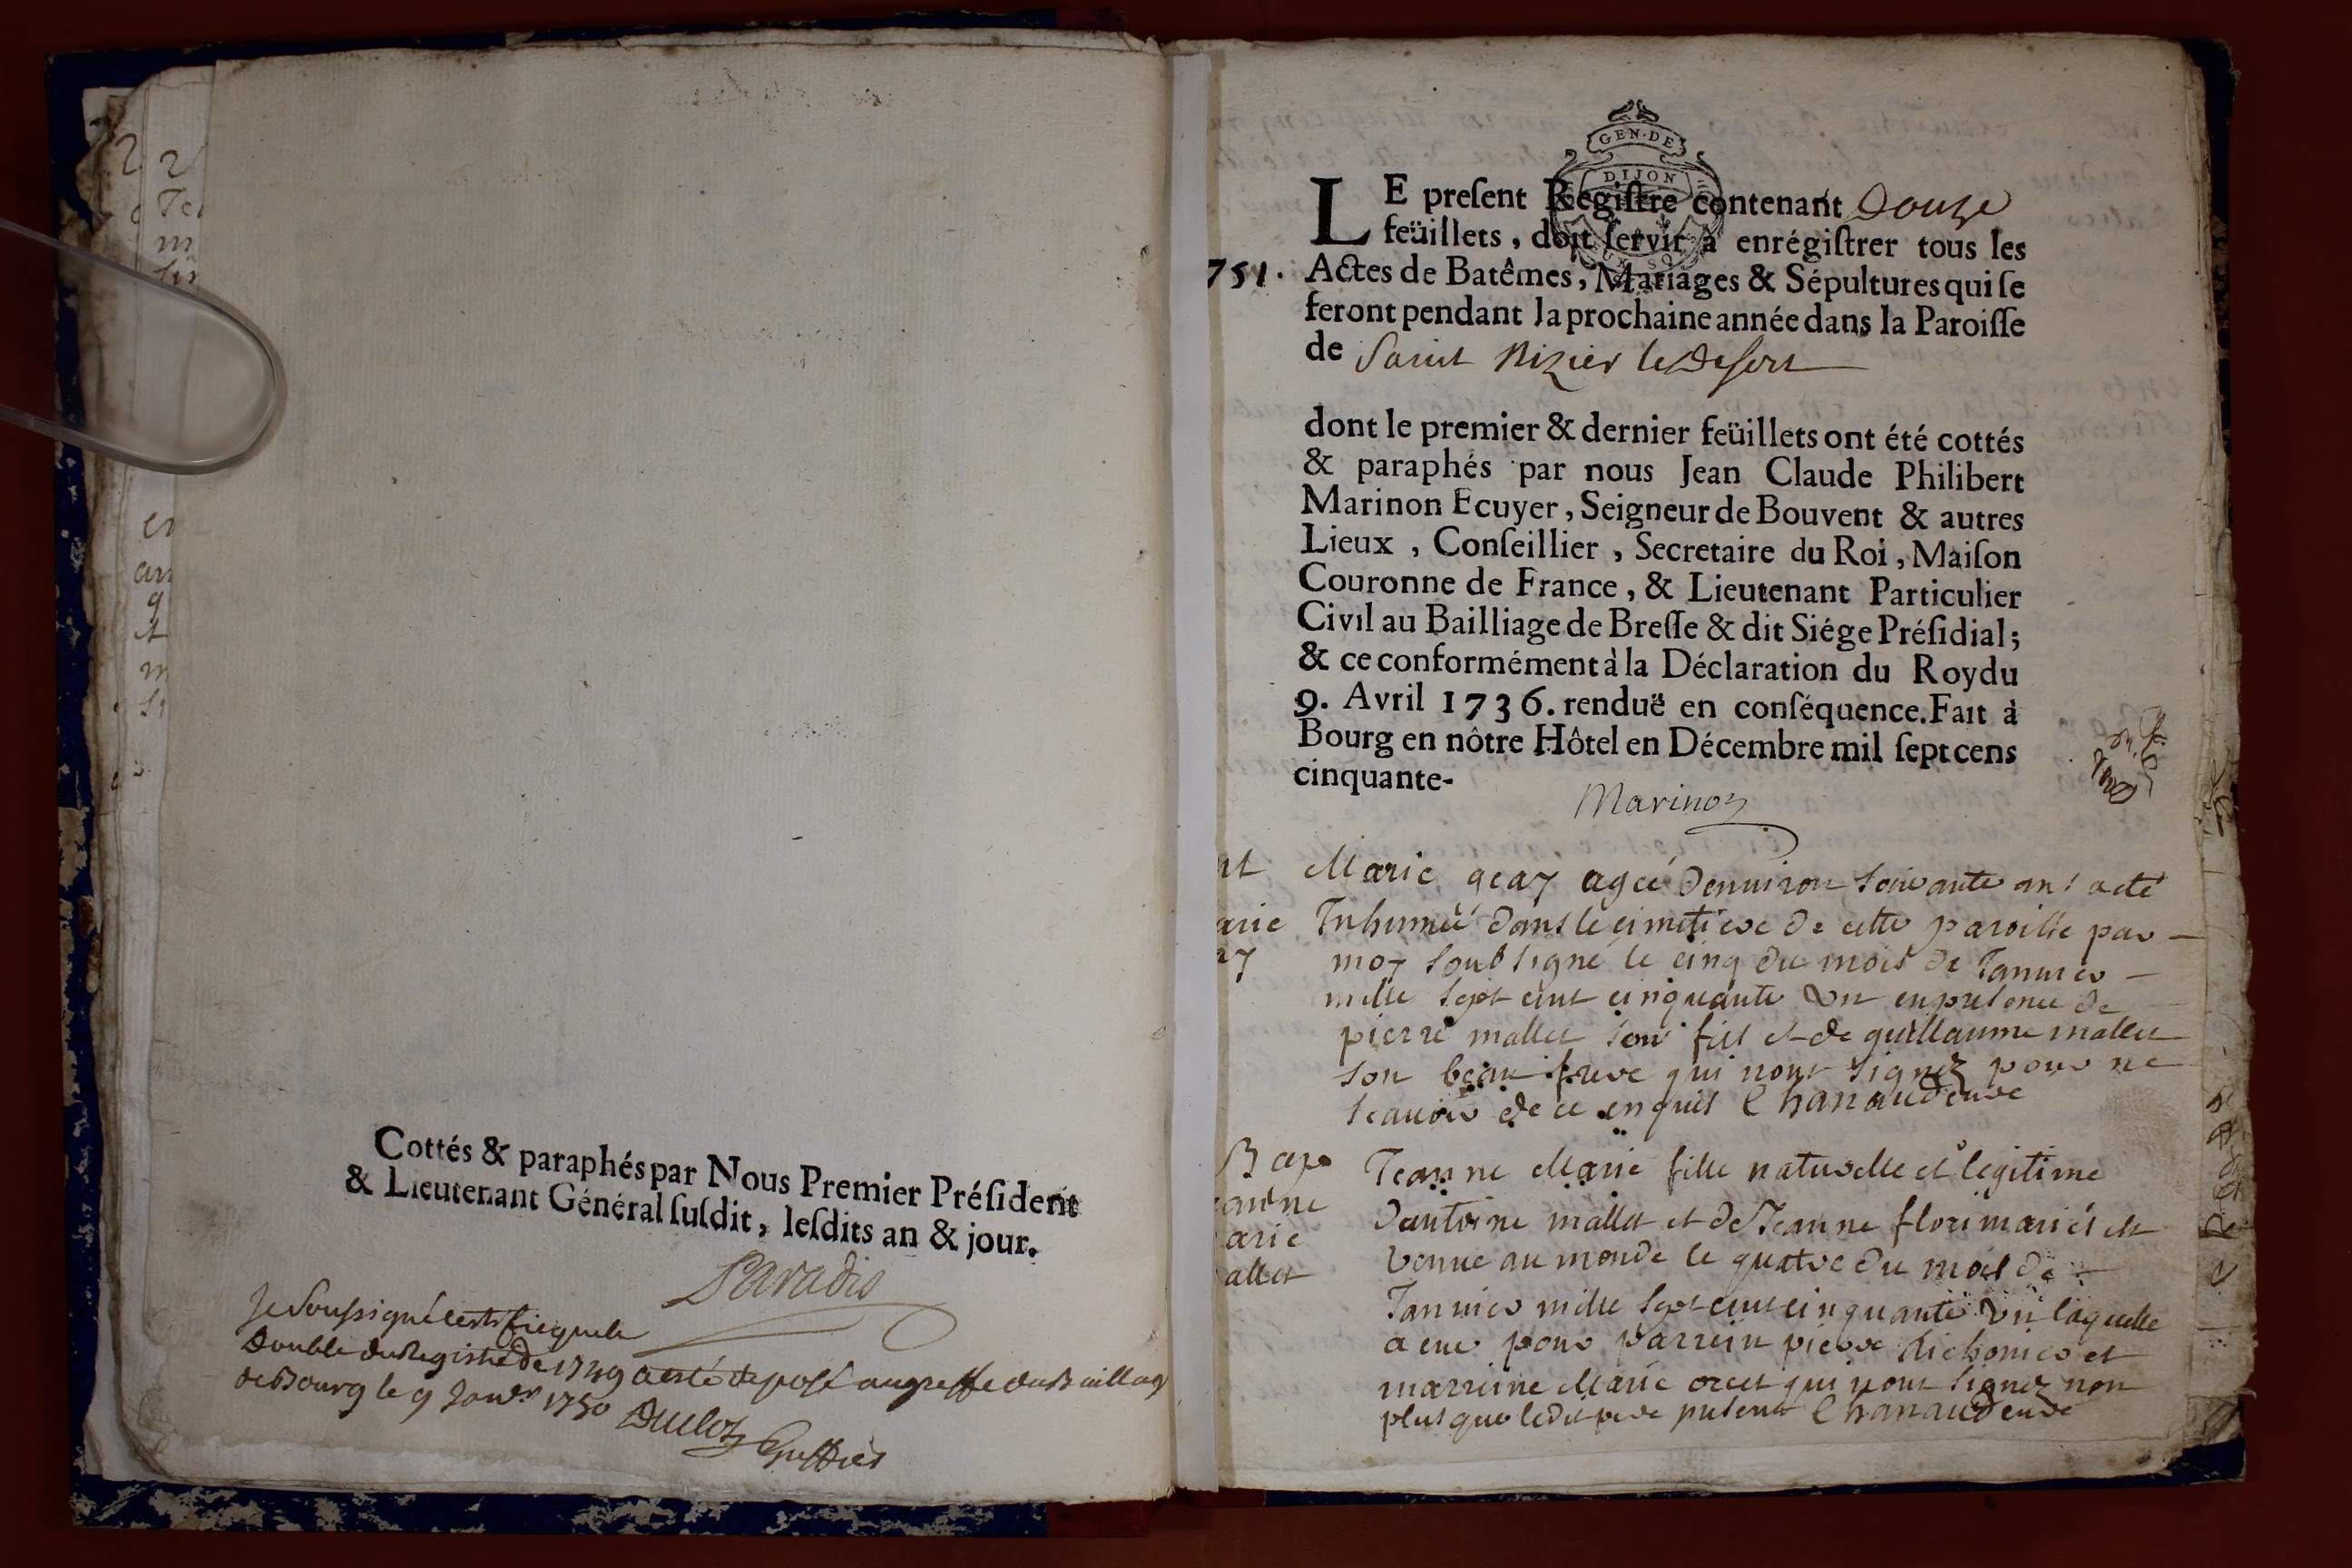 Cottés & paraphés par Nous Premier Préſident
& Lieutenant Général ſuſdit, leſdits an & jour.
Paradis
Je Soussigné certifie que le
Double du Registre de 1749 a esté deposé au greffe du Baillag
de Bourg le 9 Janer 1750
GEN·DE
DIJON
LE preſent Regiſtre contenant Douze
feüillets, doit ſervir à enrégiſtrer tous les
751. Actes de Batêmes, Mariages & Sépultures qui ſe
feront pendant la prochaine année dans la Paroiſſe
de Saint Nizier le Desert
dont le premier & dernier feüillets ont été cottés
& paraphés par nous Jean Claude Philibert
Marinon Ecuyer, Seigneur de Bouvent & autres
Lieux, Conſeillier, Secretaire du Roi, Maiſon
Couronne de France, & Lieutenant Particulier
Civil au Bailliage de Breſſe & dit Siége Préſidial;
& ce conformément à la Déclaration du Roy du
9. Avril 1736. renduë en conſéquence. Fait à
Bourg en nôtre Hôtel en Décembre mil ſept cens
cinquante-
Marinon
nt Marie geay agée denviron soixante ans a eté
arie Inhumée dans le cimetiere de cette paroisse par
ay moy soubsigné le cinq du mois de Janvier
mille sept cent cinquante un en presence de
pierre mallet son fils et de guillaume mallet
son beau frere qui nont signez pour ne
scavoir de ce enquis Chanaud curé
Bap Jeanne Marie fille naturelle et legitime
eanne dantoine mallet et de Jeanne flori mariés est
arie venue au monde le quatre du mois de
allet Janvier mille sept cent cinquante un laquelle
a eue pour parrein pierre et
marreine Marie qui nont signez non
plus que ledit pere present Chanaud curé